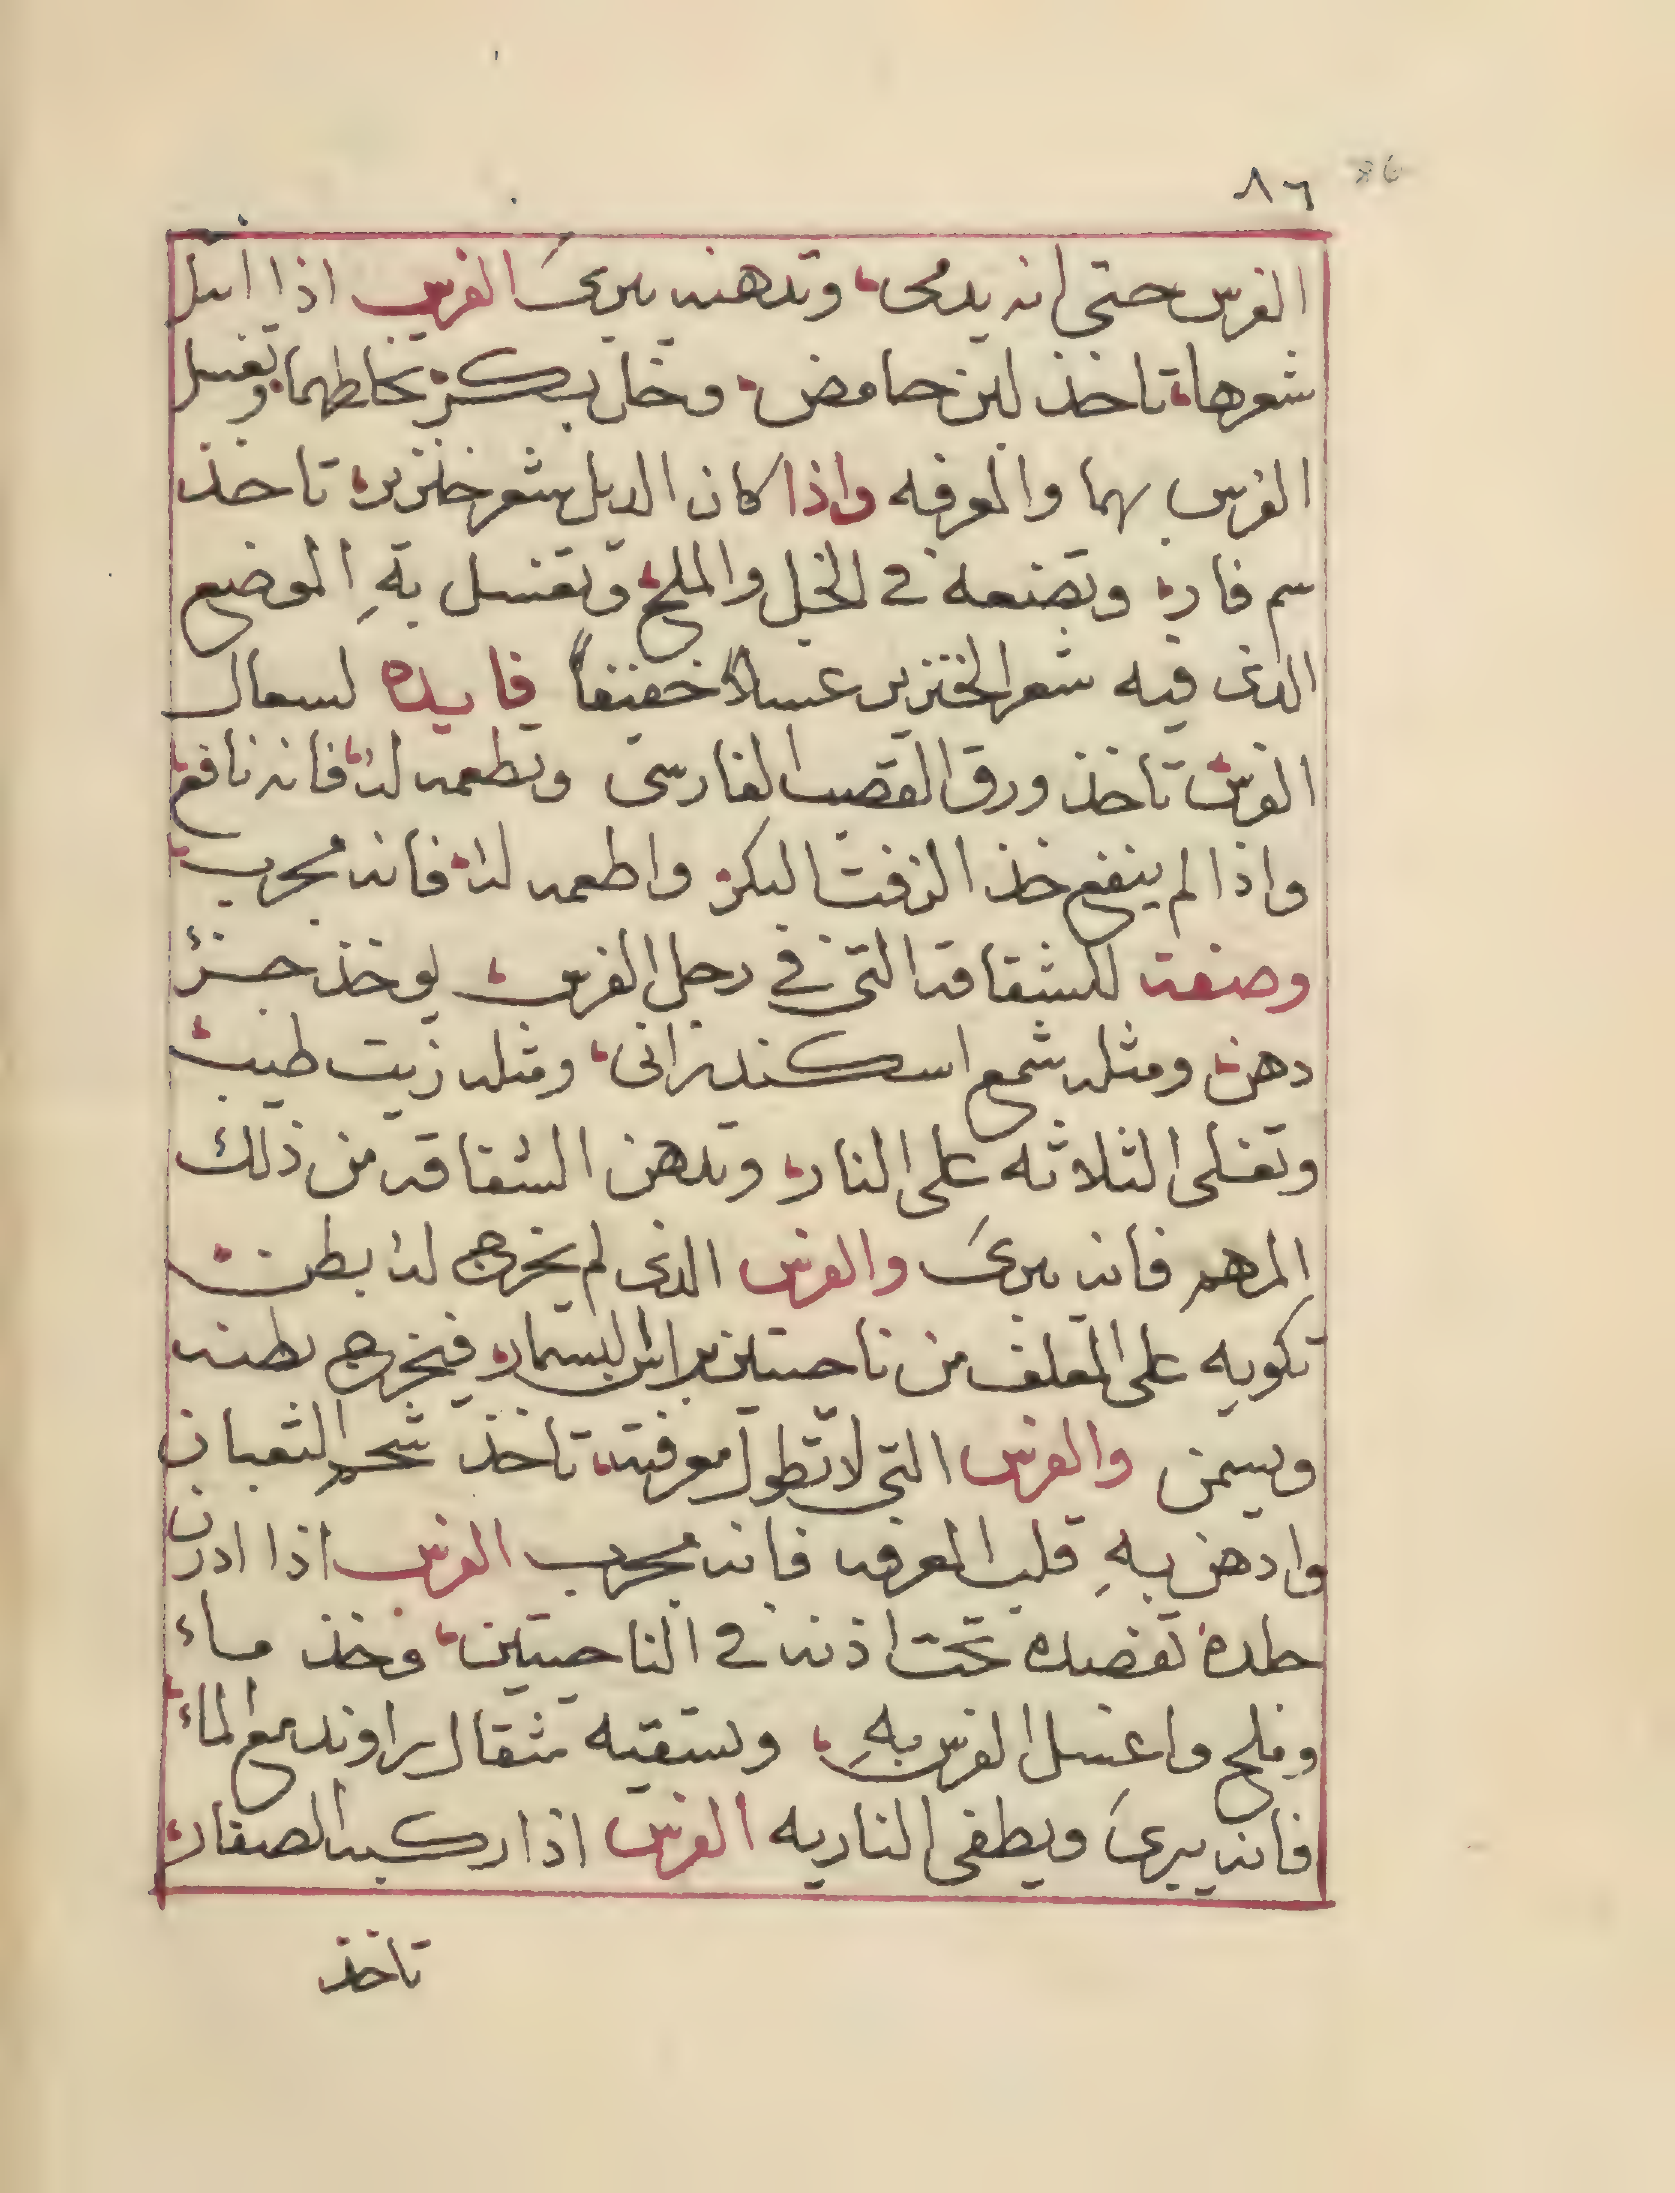 ٨٦ 86
الفرس حتى انه يدمى، وتدهنه يبرئ الفرس اذا انسل
شعرها، تاخذ لبن حامض، وخل بكر تخلطهما وتغسل
الفرس بهما والمعرفه واذا كان الديل شعر خنزير، تاخذ
سم فار، وتضعه في الخل والملح، وتغسل به الموضع
الذى فيه شعر الخنزير غسلاً خفيفاً فايده لسعال
الفرس، تاخذ ورق القصب الفارسى وتطعمه له، فانه نافع،
واذا لم ينفع خذ الزفت البكر، واطعمه له، فانه مجرب،
وصفة للشقاقه التى في رجل الفرس، يوخذ جزء
دهن، ومثله شمع اسكندرانى، ومثله زيت طيب،
وتغلى الثلاثه على النار، وتدهن الشقاقه من ذلك
المرهم فانه يبرئ والفرس الذى لم يخرج له بطن،
تكويه على المعلف من ناحيتين براس المسمار، فيخرج بطنه
ويسمن والفرس التى لا تطول معرفته، تاخذ شحم الثعبان
وادهن به قلب المعرفه فانه مجرب الفرس اذا ادرن
جلده تفصده تحت اذنه في الناحيتين، وخذ ماء
وملح واغسل الفرس به، وتسقيه مثقال براوند مع الماء،
فانه يبرئ ويطفى الناريه الفرس اذا ركبه الصفار،
تاخذ